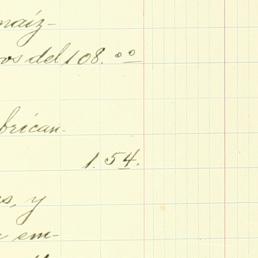 maíz-
os del 108.00
brican-
1.54.
s, y
em-